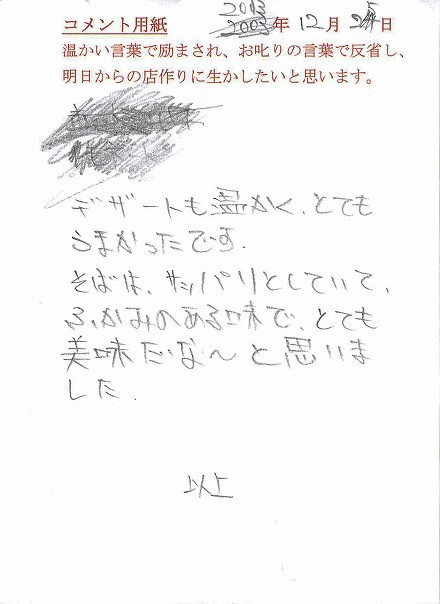 コメント用紙 2013年12月25日
温かい言葉で励まされ、お叱りの言葉で反省し、
明日からの店作りに生かしたいと思います。
デザートも温かく、とても
うまかったです.
そばは、サッパリとしていて、
ふかみのある味で、とても
美味だな〜と思いま
した.
以上